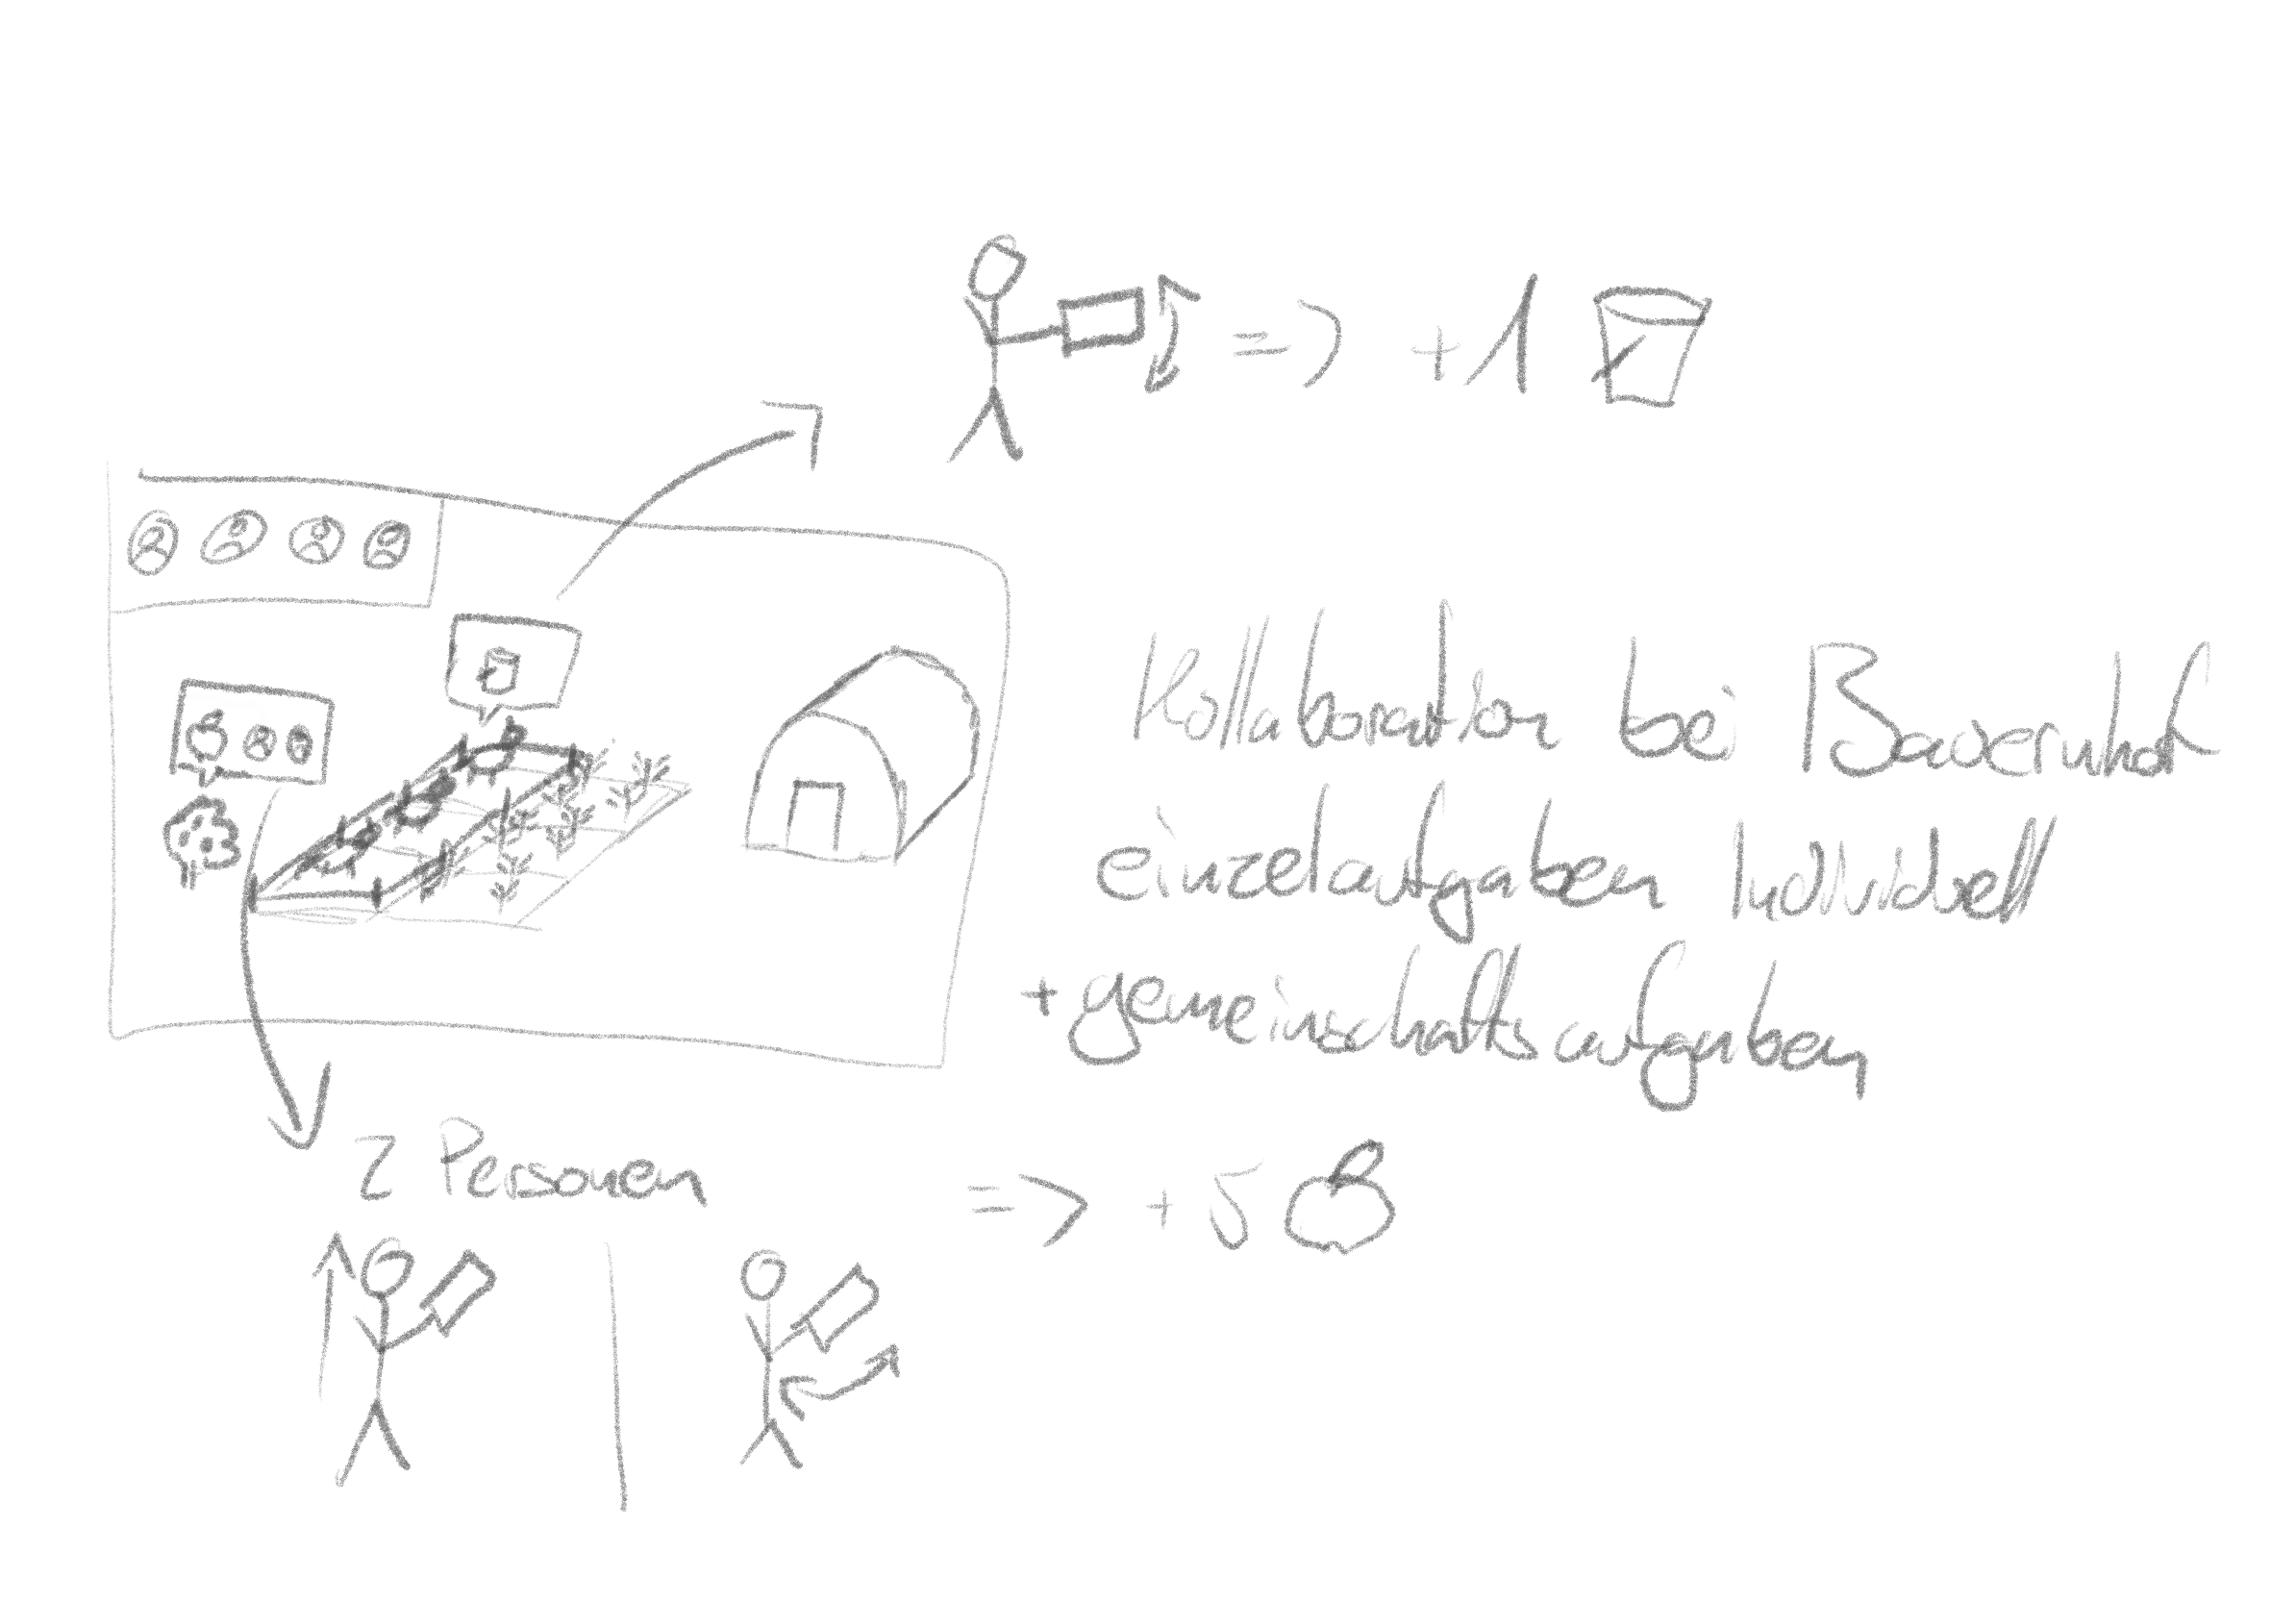 => +1
Kollaboration bei Bauernhof
einzelaufgaben Individuell
+ gemeinschaftsaufgaben
2 Personen
=> +5